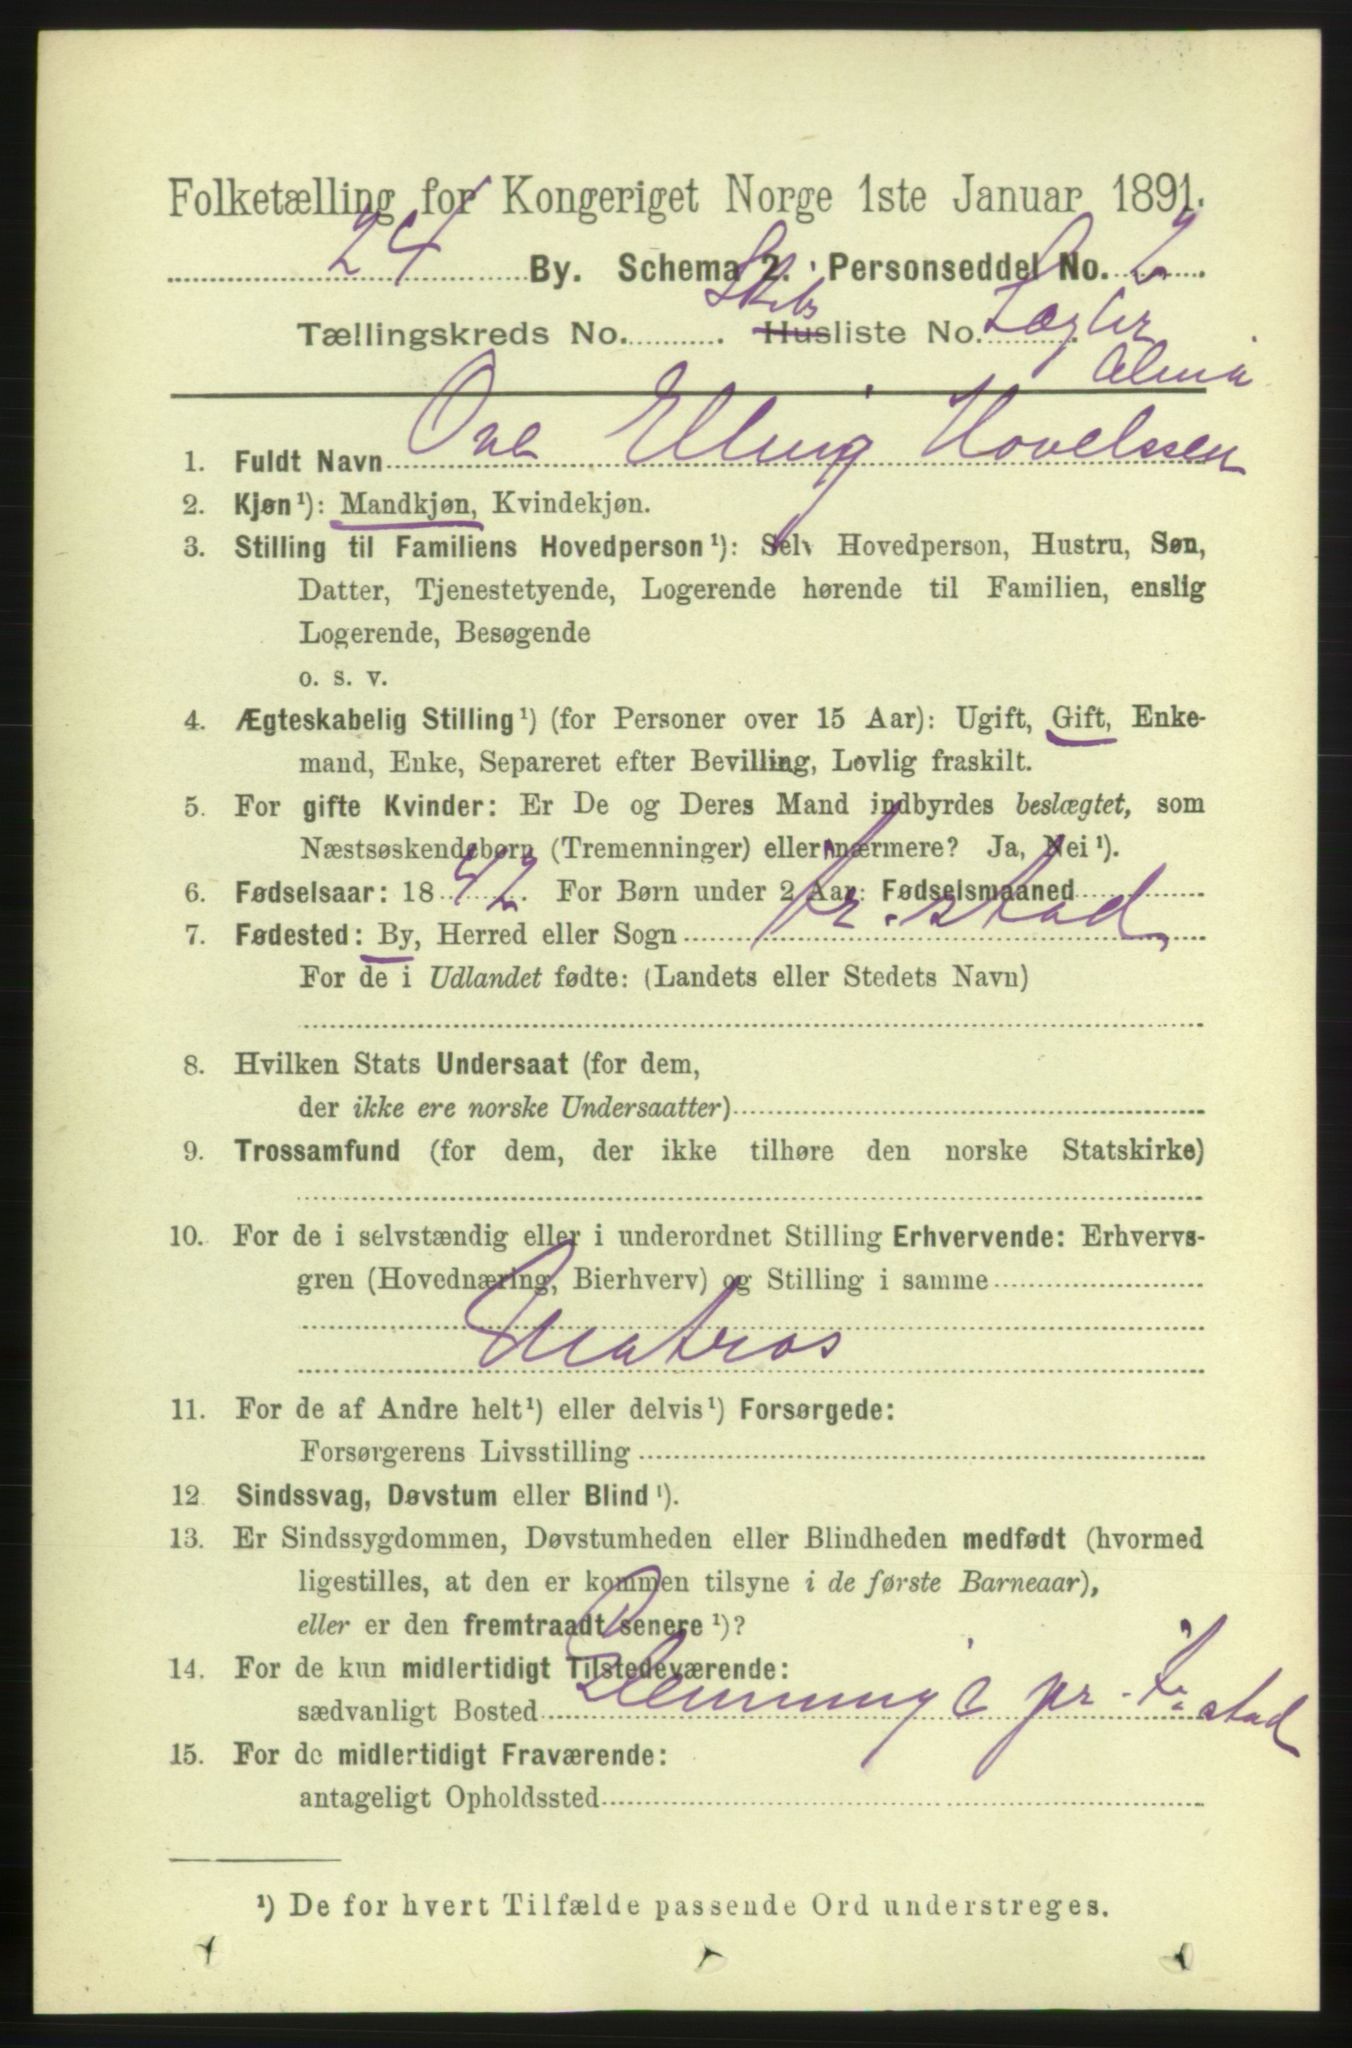 Folketælling for Kongeriget Norge 1ste Januar 1891.
24 By. Schema 2. Personseddel No. 2
Tællingskreds No. Skibs Husliste No. Lægter
Alma
1. Fuldt Navn Ove Elling Hovelssen
2. Kjøn ¹): Mandkjøn, Kvindekjøn.
3. Stilling til Familiens Hovedperson ¹): Selv Hovedperson, Hustru, Søn,
Datter, Tjenestetyende, Logerende hørende til Familien, enslig
Logerende, Besøgende
o. s. v.
4. Ægteskabelig Stilling ¹) (for Personer over 15 Aar): Ugift, Gift, Enke-
mand, Enke, Separeret efter Bevilling, Lovlig fraskilt.
5. For gifte Kvinder: Er De og Deres Mand indbyrdes beslægtet, som
Næstsøskendebørn (Tremenninger) eller nærmere? Ja, Nei ¹).
6. Fødselsaar: 1842. For Børn under 2 Aar: Fødselsmaaned
7. Fødested: By, Herred eller Sogn Fr.stad
For de i Udlandet fødte: (Landets eller Stedets Navn)
8. Hvilken Stats Undersaat (for dem,
der ikke ere norske Undersaatter)
9. Trossamfund (for dem, der ikke tilhøre den norske Statskirke)
10. For de i selvstændig eller i underordnet Stilling Erhvervende: Erhvervs-
gren (Hovednæring, Bierhverv) og Stilling i samme
Matros
11. For de af Andre helt ¹) eller delvis ¹) Forsørgede:
Forsørgerens Livsstilling
12 Sindssvag, Døvstum eller Blind ¹).
13. Er Sindssygdommen, Døvstumheden eller Blindheden medfødt (hvormed
ligestilles, at den er kommen tilsyne i de første Barneaar),
eller er den fremtraadt senere ¹)?
14. For de kun midlertidigt Tilstedeværende:
sædvanligt Bosted pr. Fr.stad
15. For de midlertidigt Fraværende:
antageligt Opholdssted
¹) De for hvert Tilfælde passende Ord understreges.